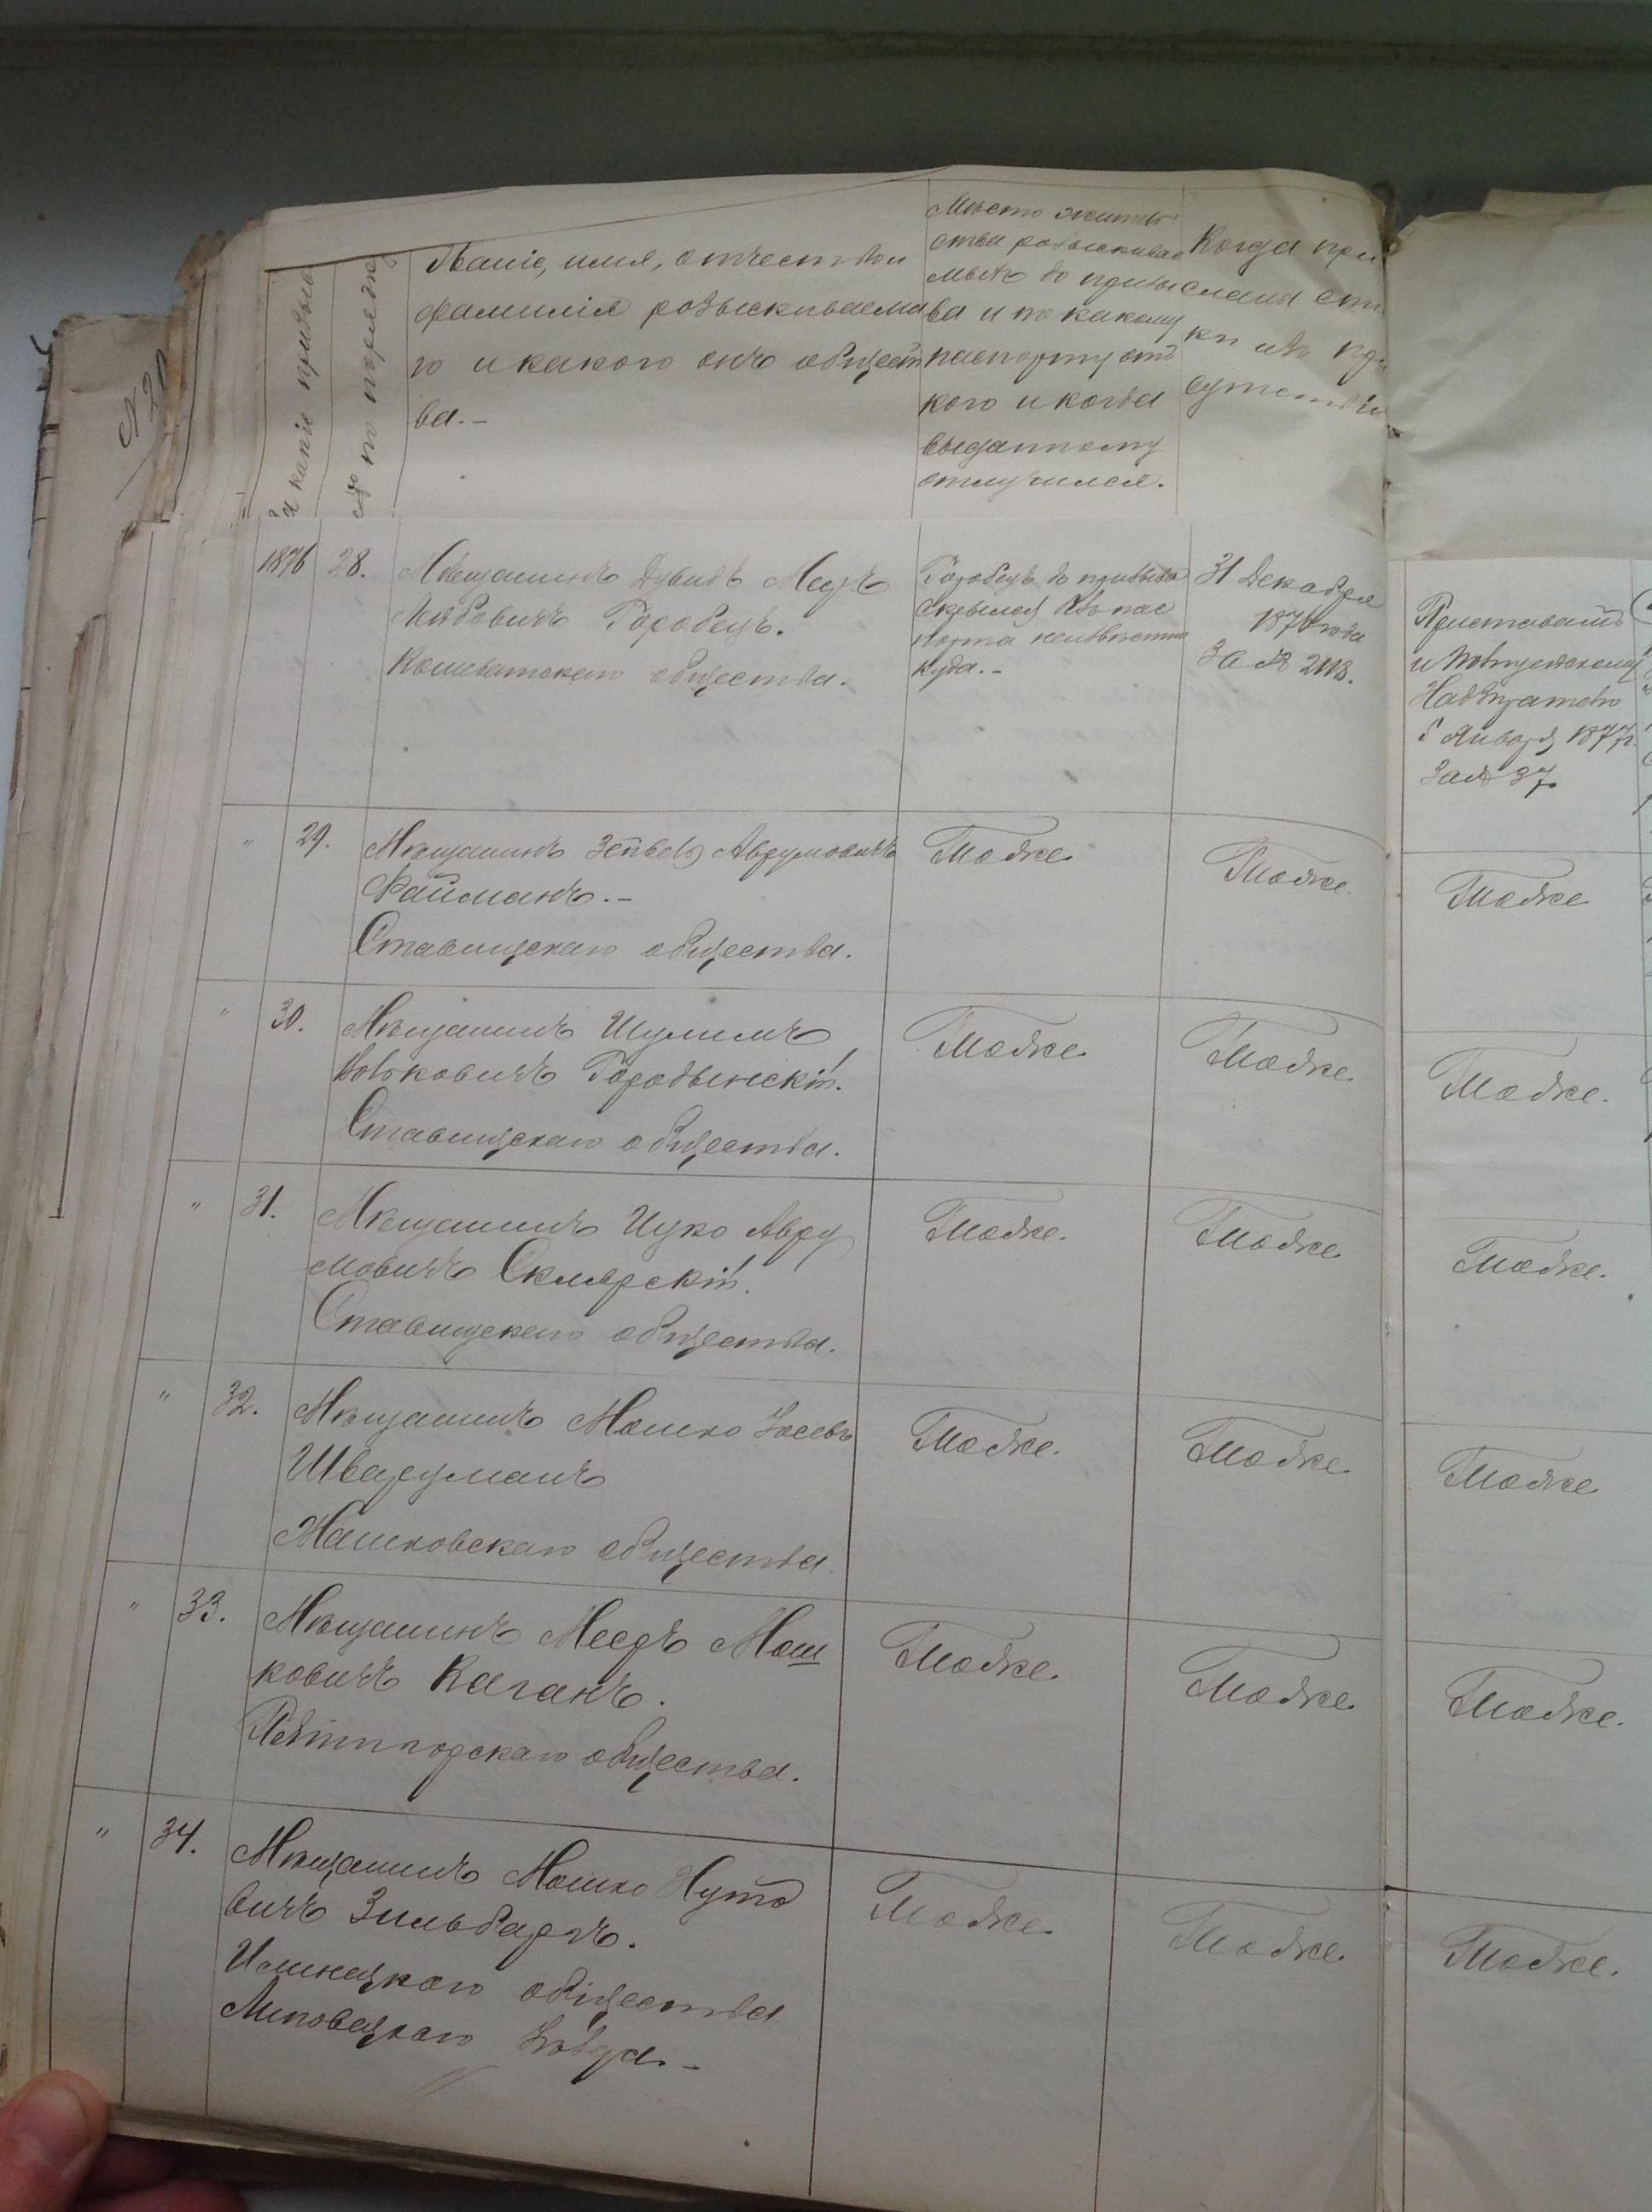 № 20
За какіе призывы
№ по порядку
Званіе, имя, отчество и
фамилія розыскиваема
го и какого онъ общест
ва.-
Мѣсто житель
ства розыскивае
мыхъ до призы
ва и по какому
паспорту отъ
кого и когда
выданному
отлучился.
Когда при
сланы спи
ки изъ при
сутствія
1876
28.
Мѣщанинъ Дувидъ Меер
Лейбовичъ Горобецъ.
Кошеватскаго общества.
Горобецъ до призыва
скрылся безъ пас
порта неизвѣстно
куда.-
31 Декабря
1876 года
За № 2113.
Приставамъ
и Полицейскому
Надзирателю
5 Января 1877 г.
За № 37.
" 29.
Мѣщанинъ Зейвель Аврумовичъ
Файманъ.-
Ставищскаго общества.
Тоже
Тоже.
Тоже
" 30.
Мѣщанинъ Шулимъ
Вольковичъ Городынскій.
Ставищскаго общества.
Тоже.
Тоже.
Тоже.
" 31.
Мѣщанинъ Ицко Авру
мовичъ Склярскій.
Ставищскаго общества.
Тоже.
Тоже.
Тоже.
" 32.
Мѣщанинъ Мошко Іосевъ
Шварцманъ
Жашковскаго общества.
Тоже.
Тоже.
Тоже
" 33.
Мѣщанинъ Мееръ Мош
ковичъ Каганъ.
Пятигорскаго общества.
Тоже.
Тоже.
Тоже.
" 34.
Мѣщанинъ Мошко Нуто
вичъ Зильбаръ.
Илинецкаго общества
Липовецкаго Уѣзда.-
Тоже.
Тоже.
Тоже.